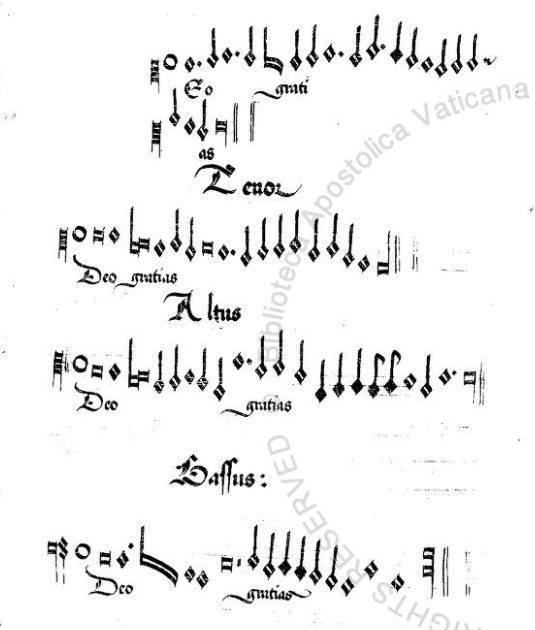 Eo grati
as
Tenor
Deo gratias
Altus
Deo gratias
Bassus:
Deo gratias
Biblioteca Apostolica Vaticana
RIGHTS RESERVED